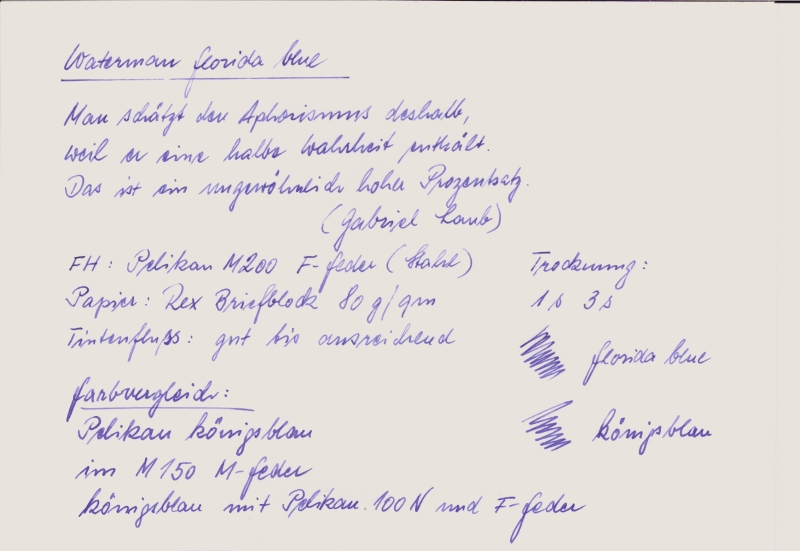 Waterman florida blue
Man schätzt den Aphorismus deshalb,
weil er eine halbe Wahrheit enthält.
Das ist ein ungewöhnlich hoher Prozentsatz.
(Gabriel Laub)
FH: Pelikan M200 F-Feder (Stahl)
Papier: Rex Briefblock 80 g/qm
Tintenfluss: gut bis ausreichend
Trocknung:
1s 3s
florida blue
königsblau
Farbvergleich:
Pelikan königsblau
im M150 M-Feder
königsblau mit Pelikan 100N und F-Feder